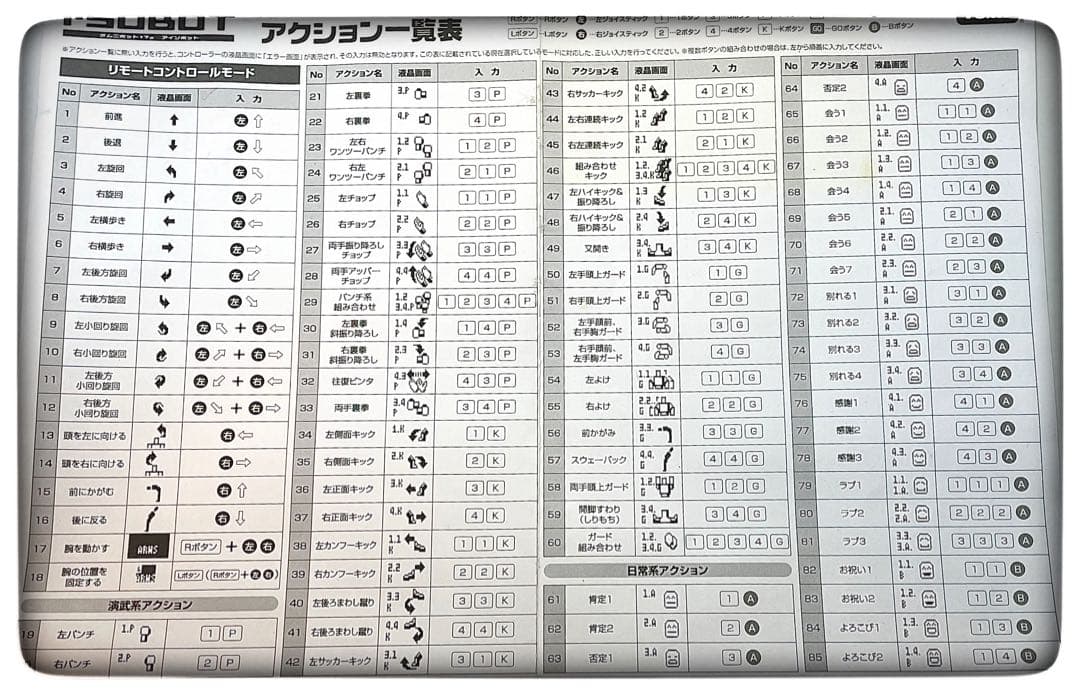 アクション一覧表
Rボタン
Lボタン
左 左ジョイスティック
右 右ジョイスティック
2 2ボタン
3 3ボタン
4 4ボタン
K Kボタン
G Gボタン
GO GOボタン
B Bボタン
※アクション一覧に無い入力を行うと、コントローラーの液晶画面に「エラー画面」が表示され、その入力は無効となります。この表に記載されている現在選択しているモードに対応した、正しい入力を行ってください。※複数ボタンの組み合わせの場合は、左から順番に入力してください。
リモートコントロールモード
No アクション名 液晶画面 入力
1 前進 ↑ 左 ⇧
2 後退 ↓ 左 ⇩
3 左旋回 左
4 右旋回 左
5 左横歩き ← 左 ⇦
6 右横歩き → 左 ⇨
7 左後方旋回 左
8 右後方旋回 左
9 左小回り旋回 左 + 右 ⇦
10 右小回り旋回 左 + 右 ⇨
11 左後方
小回り旋回 左 + 右 ⇦
12 右後方
小回り旋回 左 + 右 ⇨
13 頭を左に向ける 右 ⇦
14 頭を右に向ける 右 ⇨
15 前にかがむ 右 ⇧
16 後に反る 右 ⇩
17 腕を動かす ARMS Rボタン + 左 右
18 腕の位置を
固定する ARMS Lボタン (Rボタン + 左 右)
演武系アクション
19 左パンチ 1.P 1 P
右パンチ 2.P 2 P
No アクション名 液晶画面 入力
21 左裏拳 3.P 3 P
22 右裏拳 4.P 4 P
23 左右
ワンツーパンチ 1.2 P 1 2 P
24 右左
ワンツーパンチ 2.1 P 2 1 P
25 左チョップ 1.1 P 1 1 P
26 右チョップ 2.2 P 2 2 P
27 両手振り降ろし
チョップ 3.3 P 3 3 P
28 両手アッパー
チョップ 4.4 P 4 4 P
29 パンチ系
組み合わせ 1.2 3.4.P 1 2 3 4 P
30 左裏拳
斜振り降ろし 1.4 P 1 4 P
31 右裏拳
斜振り降ろし 2.3 P 2 3 P
32 往復ビンタ 4.3 P 4 3 P
33 両手裏拳 3.4 P 3 4 P
34 左側面キック 1.K 1 K
35 右側面キック 2.K 2 K
36 左正面キック 3.K 3 K
37 右正面キック 4.K 4 K
38 左カンフーキック 1.1 K 1 1 K
39 右カンフーキック 2.2 K 2 2 K
40 左後ろまわし蹴り 3.3 K 3 3 K
41 右後ろまわし蹴り 4.4 K 4 4 K
42 左サッカーキック 3.1 K 3 1 K
No アクション名 液晶画面 入力
43 右サッカーキック 4.2 K 4 2 K
44 左右連続キック 1.2 K 1 2 K
45 右左連続キック 2.1 K 2 1 K
46 組み合わせ
キック 1.2. 3.4.K 1 2 3 4 K
47 左ハイキック&
振り降ろし 1.3 K 1 3 K
48 右ハイキック&
振り降ろし 2.4 K 2 4 K
49 又開き 3.4. K 3 4 K
50 左手頭上ガード 1.G 1 G
51 右手頭上ガード 2.G 2 G
52 左手顔前、
右手胸ガード 3.G 3 G
53 右手顔前、
左手胸ガード 4.G 4 G
54 左よけ 1.1. G 1 1 G
55 右よけ 2.2. G 2 2 G
56 前かがみ 3.3. G 3 3 G
57 スウェーバック 4.4. G 4 4 G
58 両手頭上ガード 1.2. G 1 2 G
59 開脚すわり
(しりもち) 3.4. G 3 4 G
60 ガード
組み合わせ 1.2. 3.4.G 1 2 3 4 G
日常系アクション
61 肯定1 1.A 1 A
62 肯定2 2.A 2 A
63 否定1 3.A 3 A
No アクション名 液晶画面 入力
64 否定2 4.A 4 A
65 会う1 1.1. A 1 1 A
66 会う2 1.2. A 1 2 A
67 会う3 1.3. A 1 3 A
68 会う4 1.4. A 1 4 A
69 会う5 2.1. A 2 1 A
70 会う6 2.2. A 2 2 A
71 会う7 2.3. A 2 3 A
72 別れる1 3.1. A 3 1 A
73 別れる2 3.2. A 3 2 A
74 別れる3 3.3. A 3 3 A
75 別れる4 3.4. A 3 4 A
76 感謝1 4.1. A 4 1 A
77 感謝2 4.2. A 4 2 A
78 感謝3 4.3. A 4 3 A
79 ラブ1 1.1. 1.A. 1 1 1 A
80 ラブ2 2.2. 2.A. 2 2 2 A
81 ラブ3 3.3. 3.A. 3 3 3 A
82 お祝い1 1.1. B 1 1 B
83 お祝い2 1.2. B 1 2 B
84 よろこび1 1.3. B 1 3 B
85 よろこび2 1.4. B 1 4 B